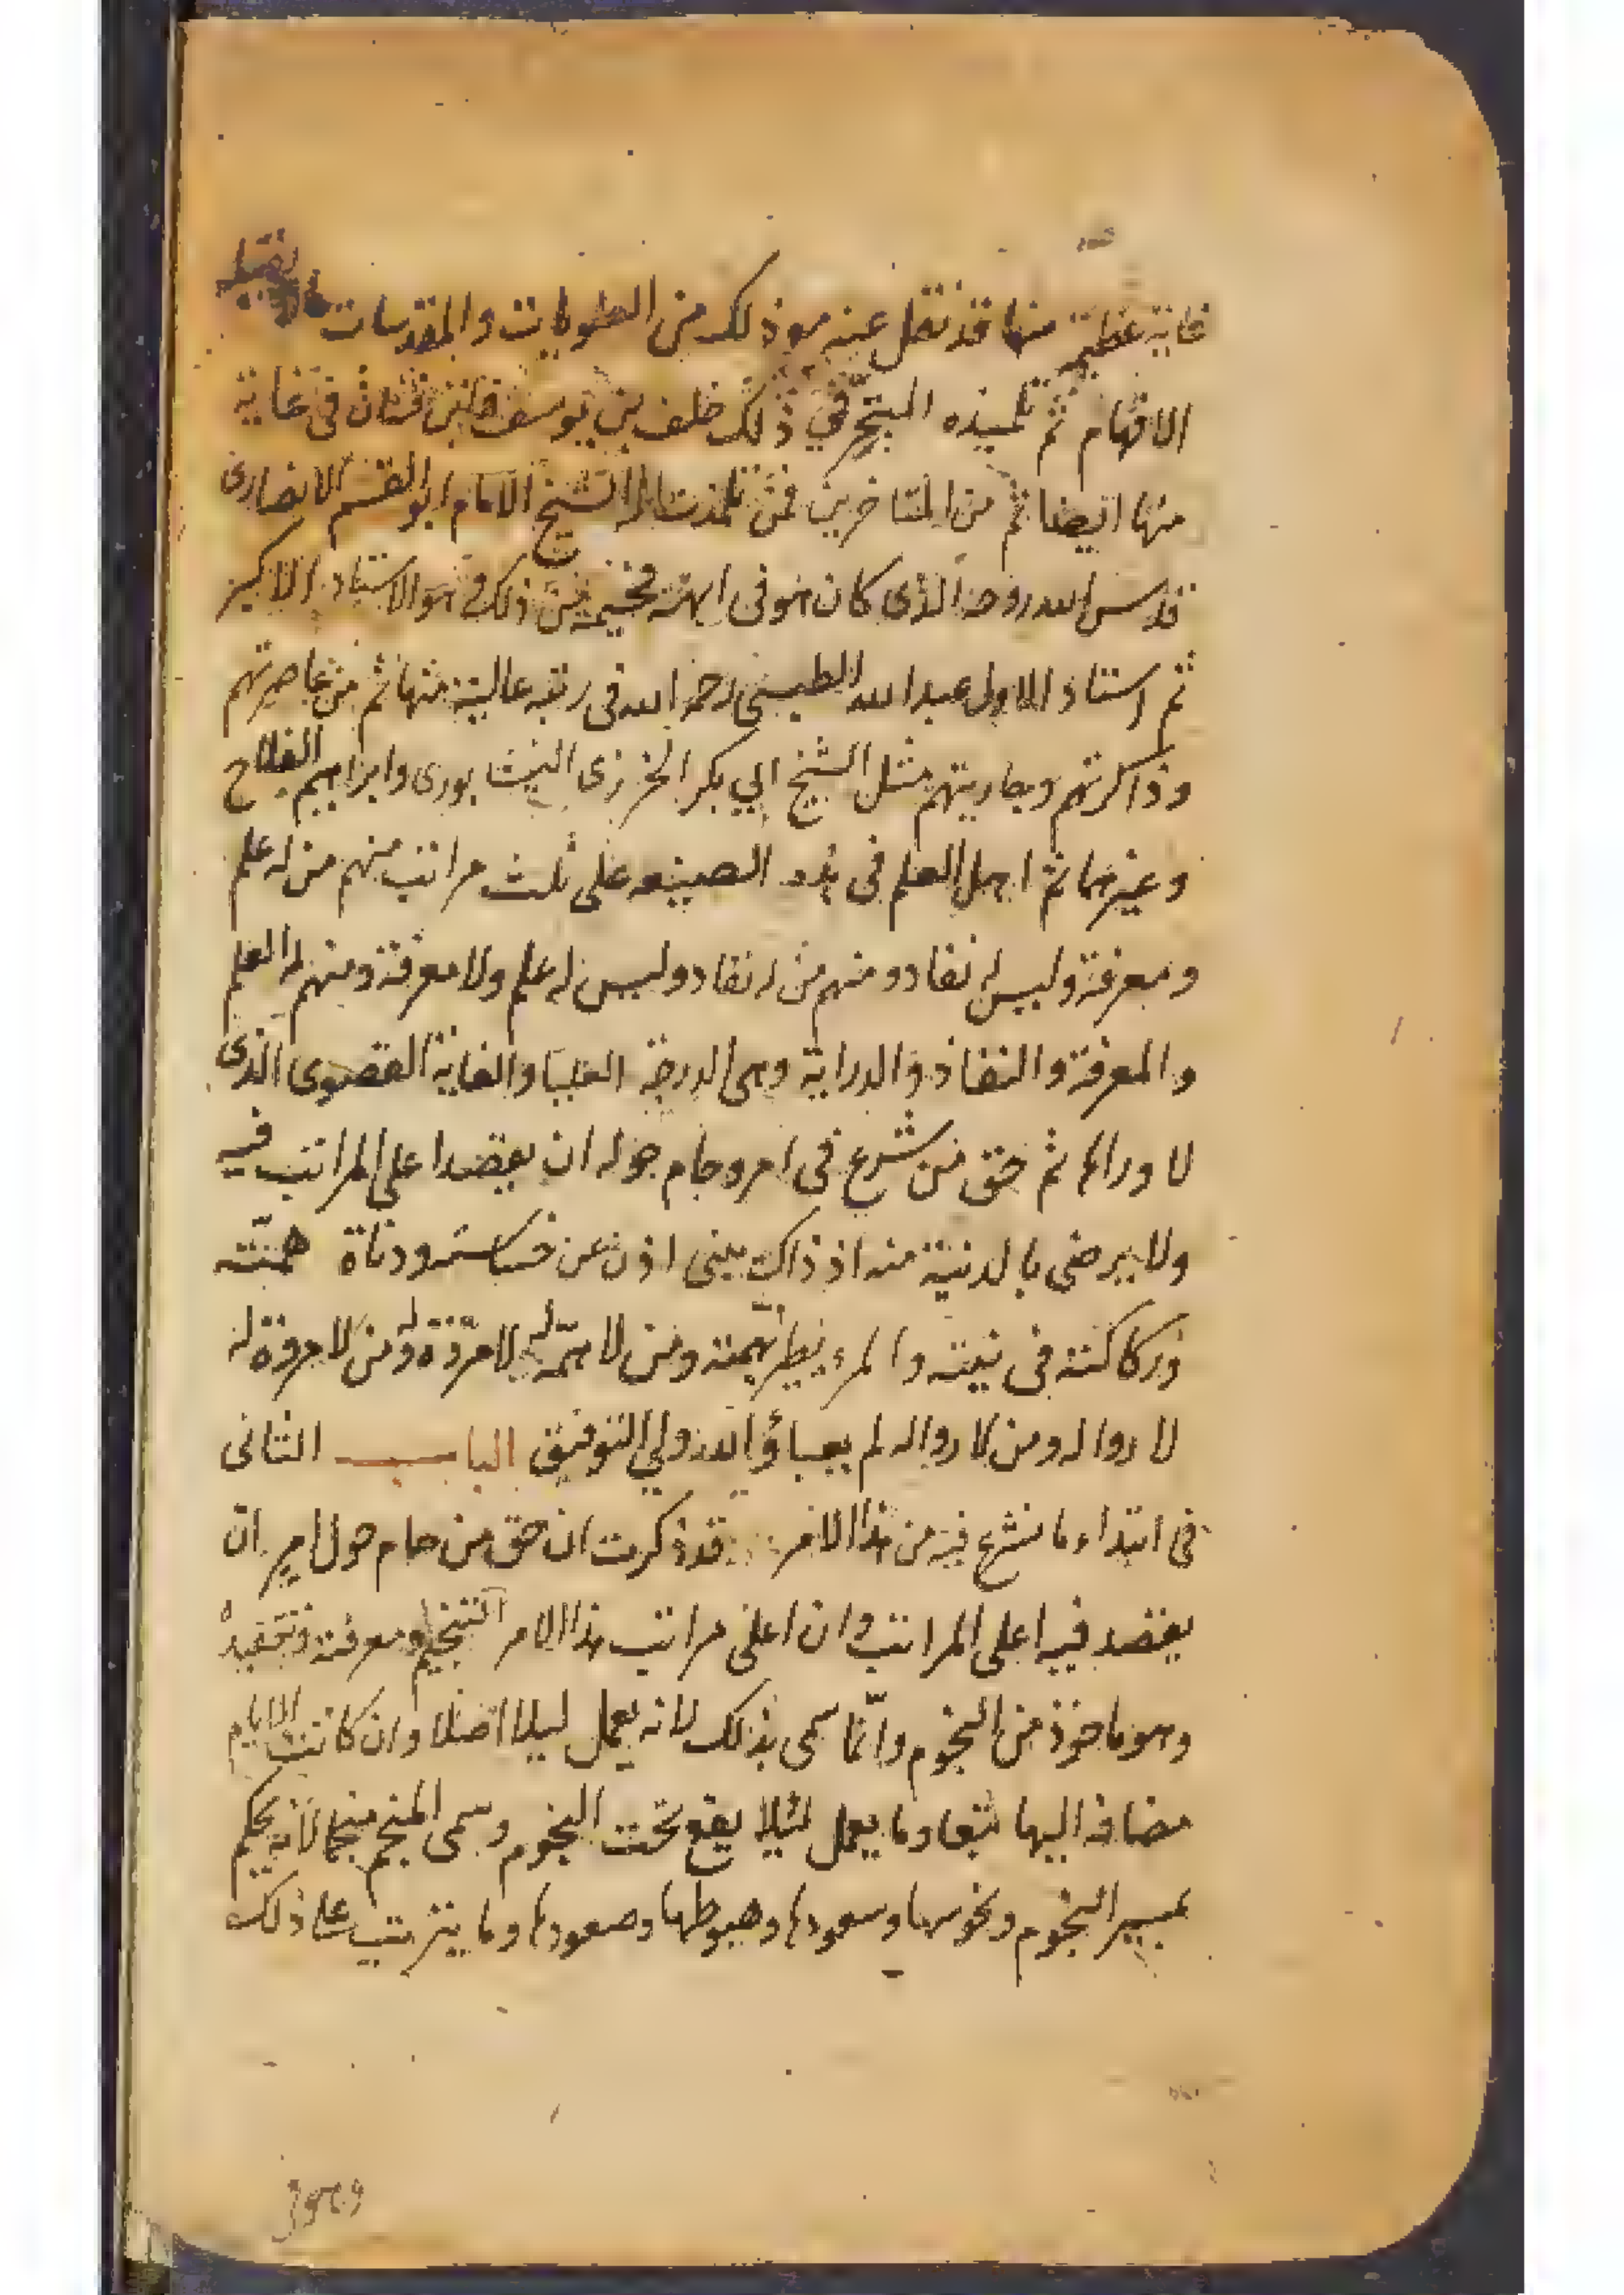 غاية عظيمة منها قد نقل عنه من ذلك من الطومات والمقدسات
الافهام ثم تلميذه المتبحر في ذلك خلف بن يوسف في غاية
منها ايضا ثم من المتاخرين فمن تلمذت له الشيخ الامام ابو القسم الانصارى
قدس الله روحه الذى كان هو فى ذلك وهو الاستاد الاكبر
ثم استاد الاول عبد الله الطبسى رحمه الله فى رتبة عالية منها ثم من عاصرتهم
وذاكرتهم وجاريتهم مثل الشيخ ابي بكر الخرزى النيشابورى وابراهيم الفلاح
وغيرهما ثم اهل العلم فى هذه الصنعه على ثلث مراتب منهم من له علم
ومعرفة وليس له نفاد ومنهم من له نفاد وليس له علم ولا معرفة ومنهم له العلم
والمعرفة والنفاذ والدراية وهى الدرجة العليا والغاية القصوى الذى
لا وراها ثم حق من شرع فى امر وحام حوله ان يقصد اعلى المراتب فيه
ولا يرضى بالدنية منه اذ ذاك ينبى اذن عن خساسته ودناة همته
وركاكته فى نيته والمرء يطير بهمته ومن لا همة له لا مروة له ومن لا مروة له
لا روا له ومن لا روا له لم يعباؤ والله ولي التوفيق الباب الثانى
فى ابتداء ما نشرع فيه من هذا الامر قد ذكرت ان حق من حام حول امر ان
يقصد فيه اعلى المراتب وان اعلى مراتب هذا الامر التنجيم ومعرفته
وهو ماخوذ من النجوم وانّما سمى بذلك لانه يعمل ليلا اصلا وان كانت الايام
مضافه اليها تبعا وما يعمل ليلا يقع تحت النجوم وسمى المنجم منجما لانه يحكم
بمسير النجوم ونحوسها وسعودها وهبوطها وصعودها وما يترتب على ذلك